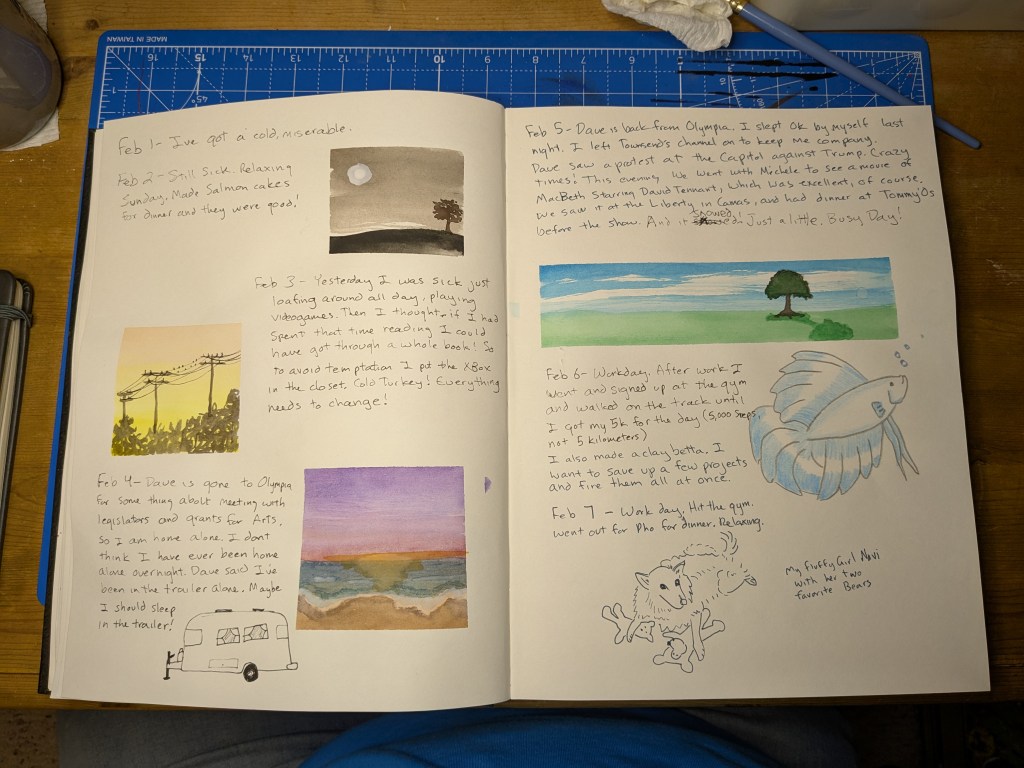 MADE IN TAIWAN
Feb 1 - I've got a cold, miserable.
Feb 2 - Still Sick. Relaxing
Sunday. Made Salmon cakes
for dinner and they were good!
Feb 3 - Yesterday I was sick just
loafing around all day, playing
videogames. Then I thought, if I had
spent that time reading I could
have got through a whole book! So
to avoid temptation I put the XBox
in the closet. Cold Turkey! Everything
needs to change!
Feb 4 - Dave is gone to Olympia
for some thing about meeting with
legislators and grants for Arts,
so I am home alone. I don't
think I have ever been home
alone overnight. Dave said I've
been in the trailer alone. Maybe
I should sleep
in the trailer!
Feb 5 - Dave is back from Olympia. I slept OK by myself last
night. I left Townsend's channel on to keep me company.
Dave saw a protest at the Capitol against Trump. Crazy
times! This evening we went with Michele to see a movie of
MacBeth starring David Tennant, which was excellent, of course.
We saw it at the Liberty in Camas, and had dinner at Tommy O's
before the show. And it snowed! Just a little. Busy Day!
Feb 6 - Workday. After work I
went and signed up at the gym
and walked on the track until
I got my 5k for the day (5,000 steps,
not 5 kilometers)
I also made a clay betta. I
want to save up a few projects
and fire them all at once.
Feb 7 - Work day. Hit the gym.
went out for Pho for dinner. Relaxing.
My fluffy Girl Navi
with her two
favorite Bears